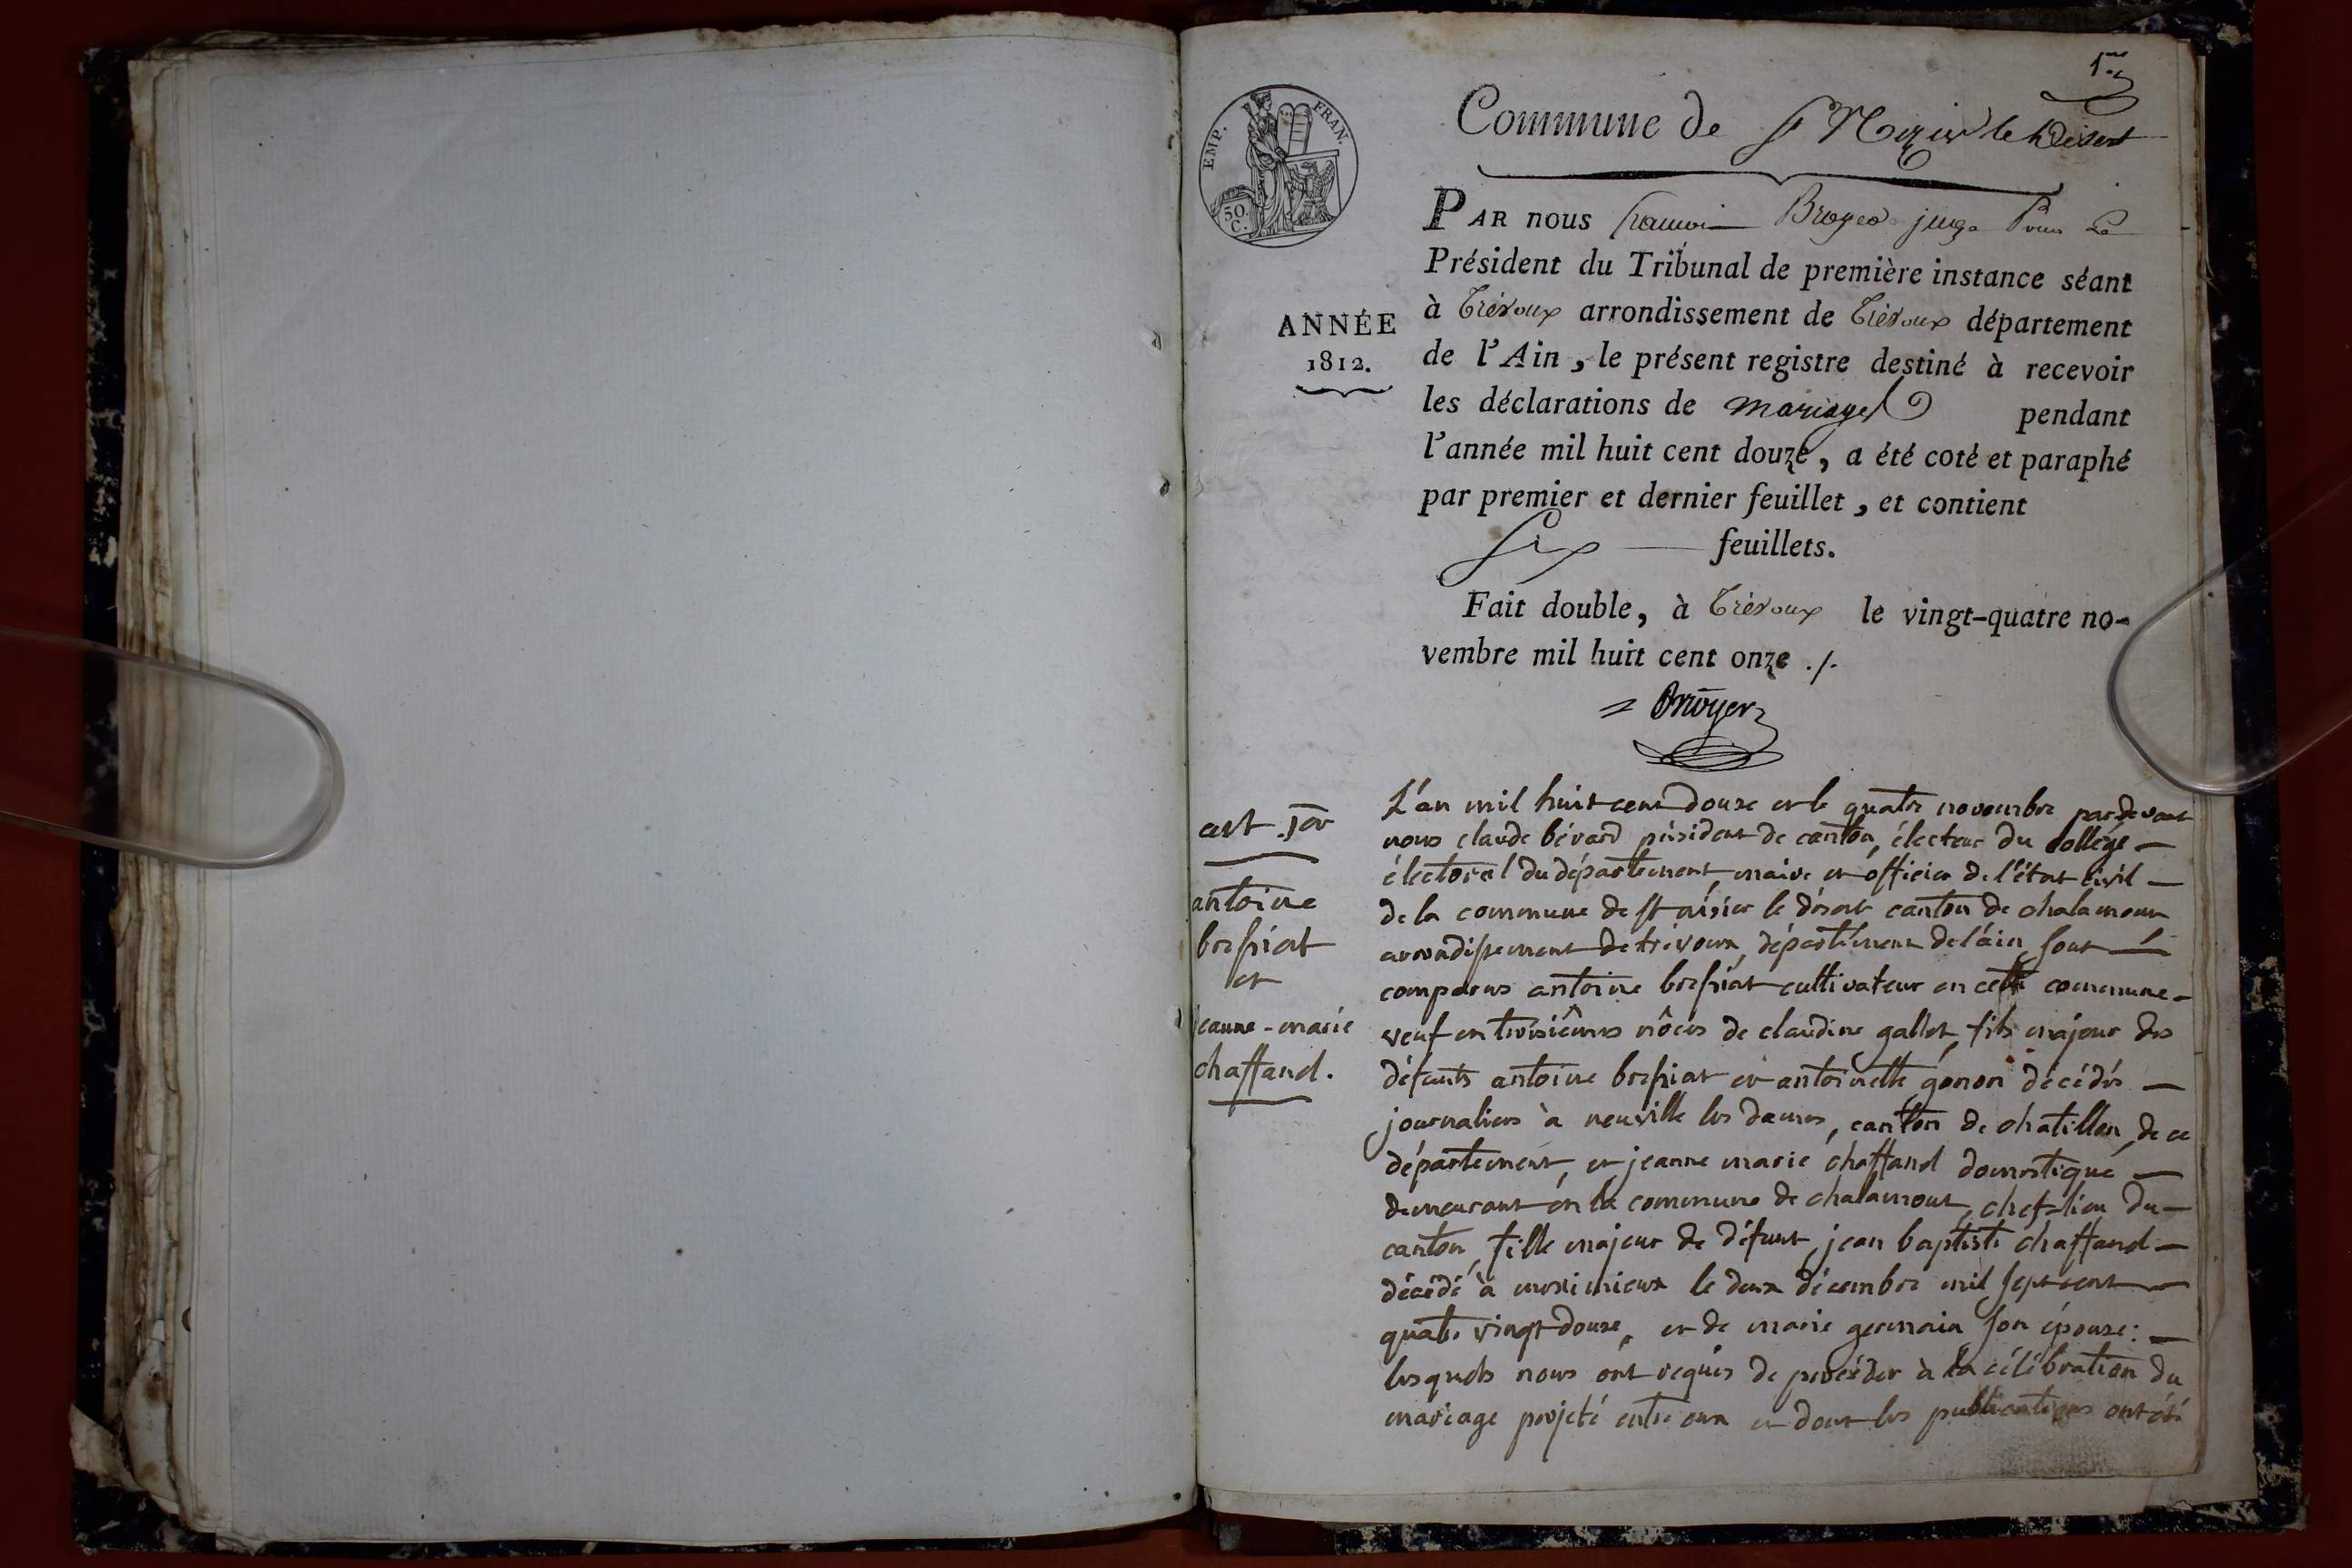 1er
EMP. FRAN.
50.
C.
Commune de St Nizier le Désert
PAR nous françois Broyer juge Pour Le
Président du Tribunal de première instance séant
à Trévoux arrondissement de Trévoux département
ANNÉE
1812.
de l'Ain, le présent registre destiné à recevoir
les déclarations de mariages pendant
l'année mil huit cent douze, a été coté et paraphé
par premier et dernier feuillet, et contient
Six feuillets.
Fait double, à Trévoux le vingt-quatre no-
vembre mil huit cent onze ./.
Broyer
art. 1er
antoine
bressiat
et
jeanne-marie
chaffand.
L'an mil huit cent douze et le quatre novembre pardevant
nous claude bévard président de canton, électeur du collége
électoral du département, maire et officier de l'état civil
de la commune de st nisier le désert canton de chalamont
arrondissement de trévoux, département de l'ain, sont
comparus antoine bressiat cultivateur en cette commune
veuf en troisièmes nôces de claudine gallet, fils majeur des
défunts antoine bressiat et antoinette gonon décédés
journaliers à neuville les dames, canton de chatillon, de ce
département, et jeanne marie chaffand domestique
demeurant en la commune de chalamont, chef-lieu du
canton, fille majeur de défunt jean baptiste chaffand
décédé à meximieux le deux décembre mil sept cent
quatre vingt douze, et de marie germain son épouse:
lesquels nous ont requis de procéder à la célébration du
mariage projeté entre eux et dont les publications ont été